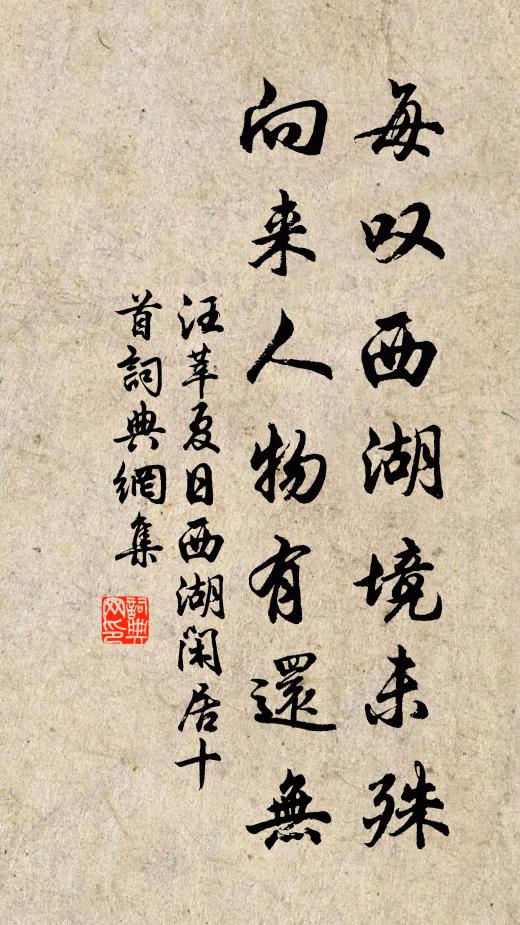 每叹西湖境未殊
向来人物有還無
汪莘夏日西湖閑居十
首詞典網集
詞典
网印